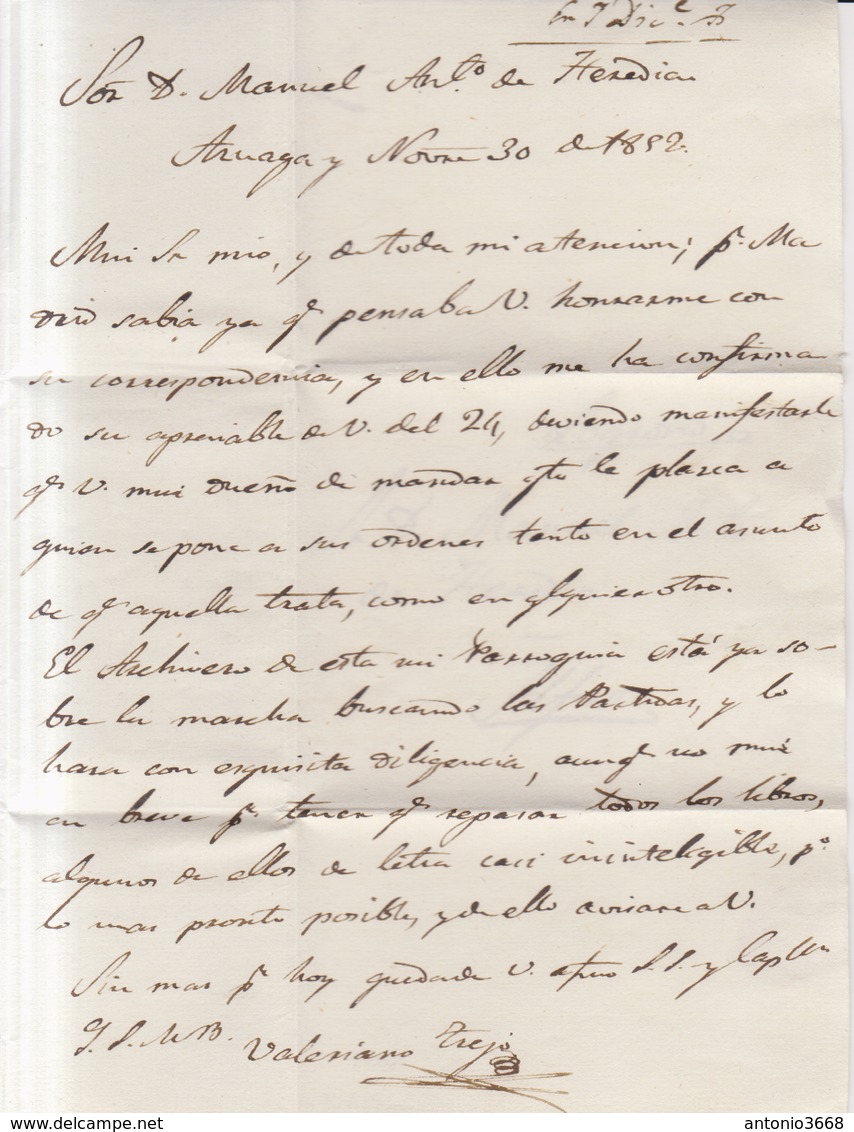 En 7 Dic.e
Sor D. Manuel Ant.o de Heredia
Azuaga y Novre 30 de 1852.
Mui Sr mio, y de toda mi atencion; pr. Ma
drid sabia ya qe pensaba V. honrarme con
su correspondencia, y en ello me ha confirma
do su apreciable de V. del 24, deviendo manifestarle
qe V. mui dueño de mandar qto le plazca a
quien se pone a sus ordenes tanto en el asunto
de qe aquella trata, como en qlquier otro.
El Archivero de esta mi Parroquia está ya so-
bre la marcha buscando las Partidas, y lo
hara con esquisita diligencia, aunqe no mui
en breve pr tener qe repasar todos los libros,
algunos de ellos de letra casi ininteligible, po
lo mas pronto posible, y de ello avisare a V.
Sin mas pr hoy queda de V. afmo S. S. y Capllan
Q. S. M. B. Valeriano Trejo
antonio3668